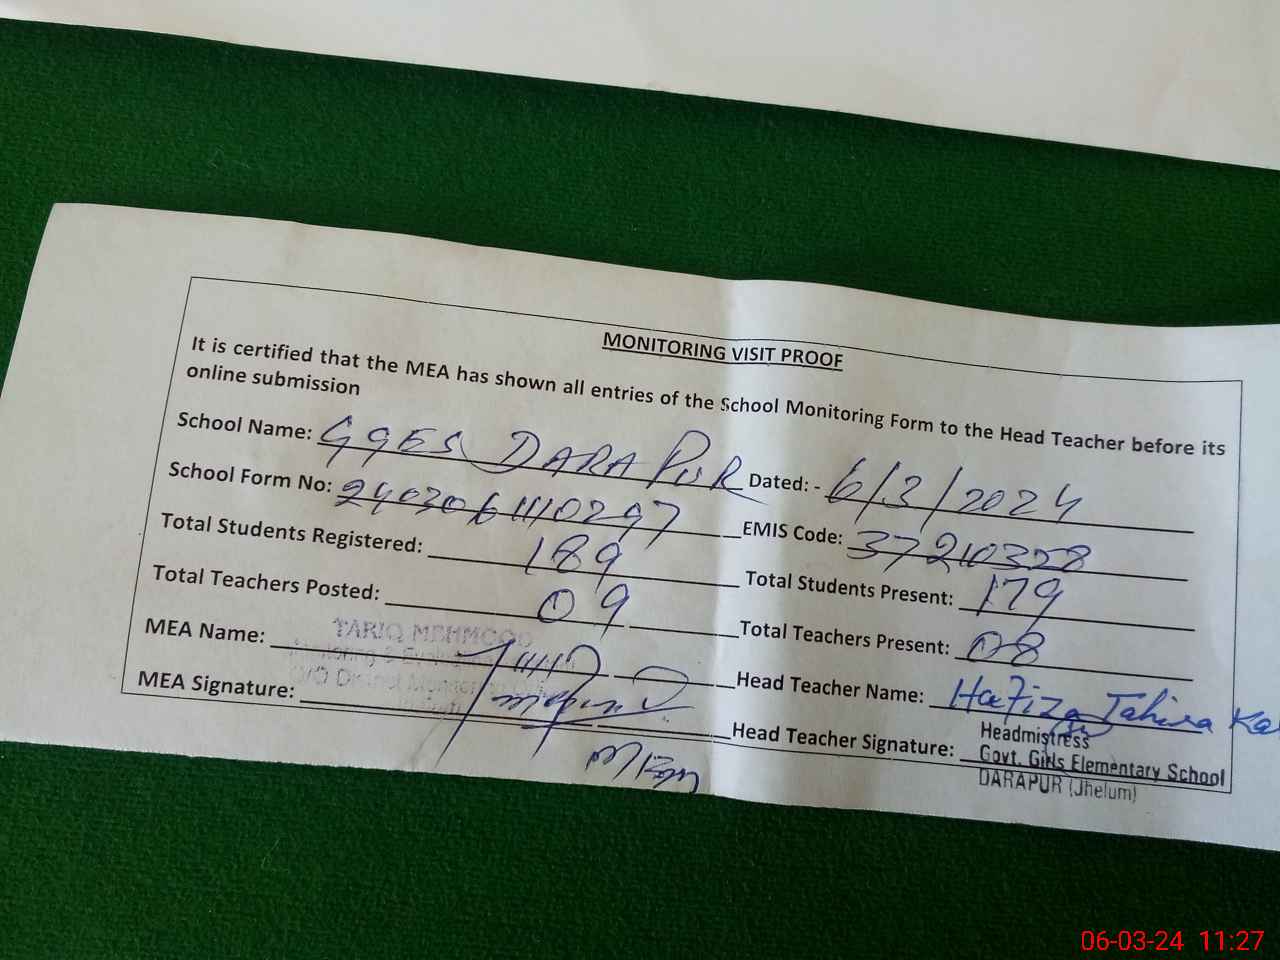 MONITORING VISIT PROOF
It is certified that the MEA has shown all entries of the School Monitoring Form to the Head Teacher before its
online submission
School Name: GGES DARA PUR Dated: - 6/3/2024
School Form No: 2403061110297 EMIS Code: 37210328
Total Students Registered: 189 Total Students Present: 179
Total Teachers Posted: 09 Total Teachers Present: 08
MEA Name: TARIQ MEHMOOD Head Teacher Name: Hafiza Tahira
MEA Signature: Head Teacher Signature:
Headmistress
Govt. Girls Elementary School
DARAPUR (Jhelum)
06-03-24 11:27